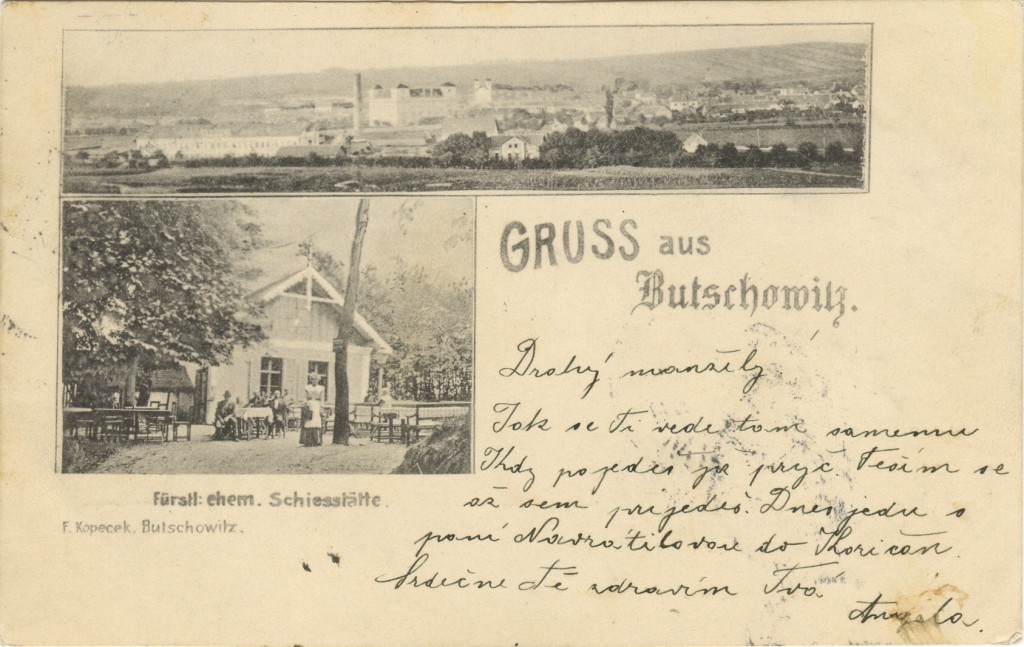 GRUSS aus
Butschowitz.
Drahý manžily
Jak se Ti vede tam samemu
Kdy pojedeš ja pryč. Teším se
až sem prijedeš. Dnes jedu s
paní Navrátilovou do Koričan.
Srdečne Tě zdravím Tvá
Fürstl: ehem. Schiesstätte.
F. Kopecek, Butschowitz.